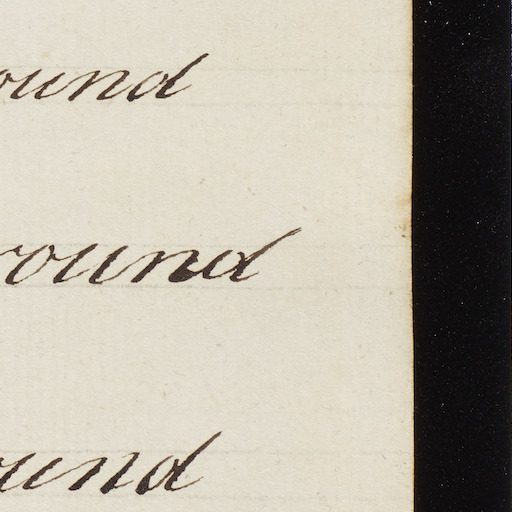 ound
round
ound